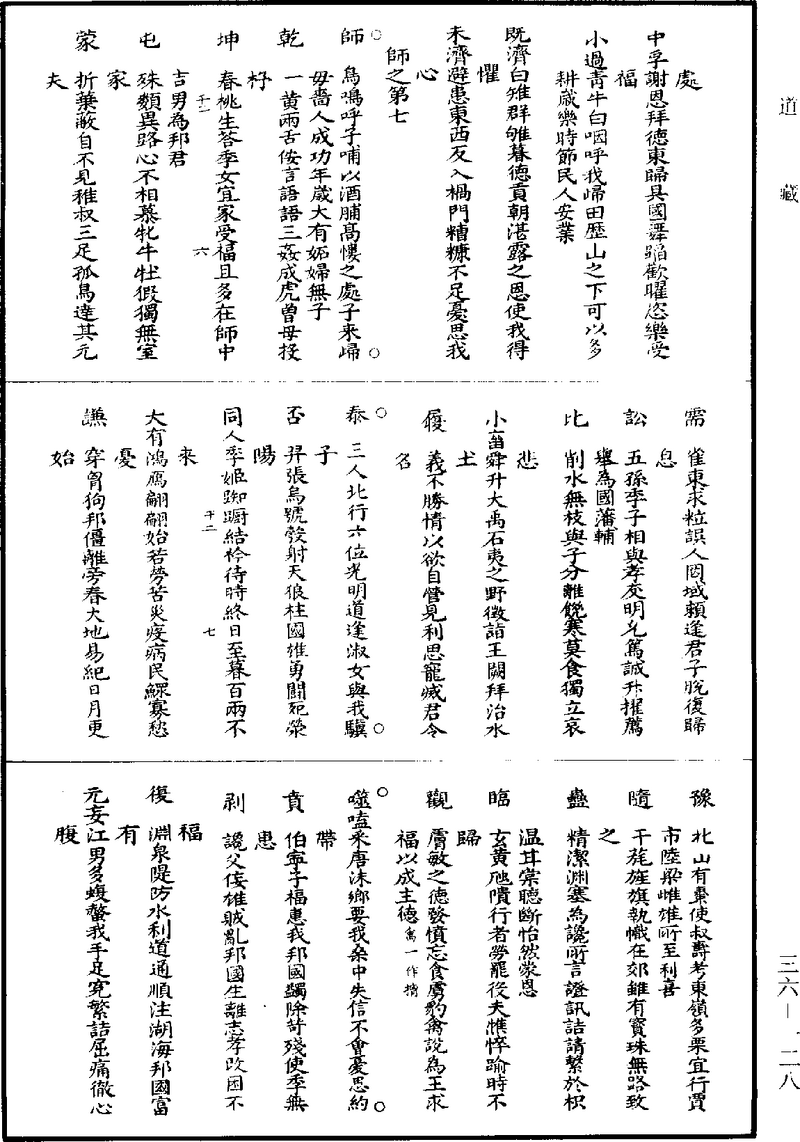 道　藏
處
中孚謝恩拜德東歸其國舞蹈歡躍恣樂受
福
小過青牛白咽呼我歸田歷山之下可以多
耕歲樂時節民人安業
既濟白雉群雊慕德貢朝湛露之恩使我得
懼
未濟避患東西反入禍門糟糠不足憂思我
心
師之第七
師　烏鳴呼子哺以酒脯高樓之處子來歸
毋嗇人成功年歲大有妬婦無子
乾　一黃兩舌佞言語語三姦成虎曾母投
杼
坤　春桃生荅季女宜家受福且多在師中
吉男為邦君
十一　六
屯　殊類異路心不相慕牝牛牡猳獨無室
家
蒙　折葉蔽目不見稚叔三足孤烏遠其元
夫
需　雀東求粒誤入罔域賴逢君子脫復歸
息
訟　五孫季子相與孝友明允篤誠升擢薦
舉為國藩輔
比　削水無枝與子分離飢寒莫食獨立哀
悲
小畜舜升大禹石夷之野徵詣王闕拜治水
土
履　義不勝情以欲自營見利思寵滅君令
名
泰　三人北行六位光明道逢淑女與我驥
子
否　羿張烏號彀射天狼柱國雄勇鬪死滎
陽
同人季姬踟躕結衿待時終日至暮百兩不
來
十二　七
大有鴻鴈翩翩始若勞苦災疫病民鰥寡愁
憂
謙　穿胷狗邦僵離旁春大地易紀日月更
始
豫　北山有棗使叔壽考東嶺多栗宜行賈
市陸梁雌雄所至利喜
隨　干旄旌旗執幟在郊雖有寶珠無路致
之
蠱　精潔淵塞為讒所言證訊詰請繫於枳
溫甘棠聽斷怡然蒙恩
臨　玄黃虺隤行者勞罷役夫憔悴踰時不
歸
觀　膚敏之德發憤忘食虜豹禽說為王求
福以成主德禽一作擒
噬嗑采唐沫鄉要我桑中失信不會憂思約
帶
賁　伯寧子福惠我邦國蠲除苛殘使季無
患
剥　讒父佞雄賊亂邦國生離志孝改困不
福
復　淵泉隄防水利道通順注湖海邦國富
有
无妄江男多蝮螫我手足寃繁詰屈痛徹心
腹
三六—一二八